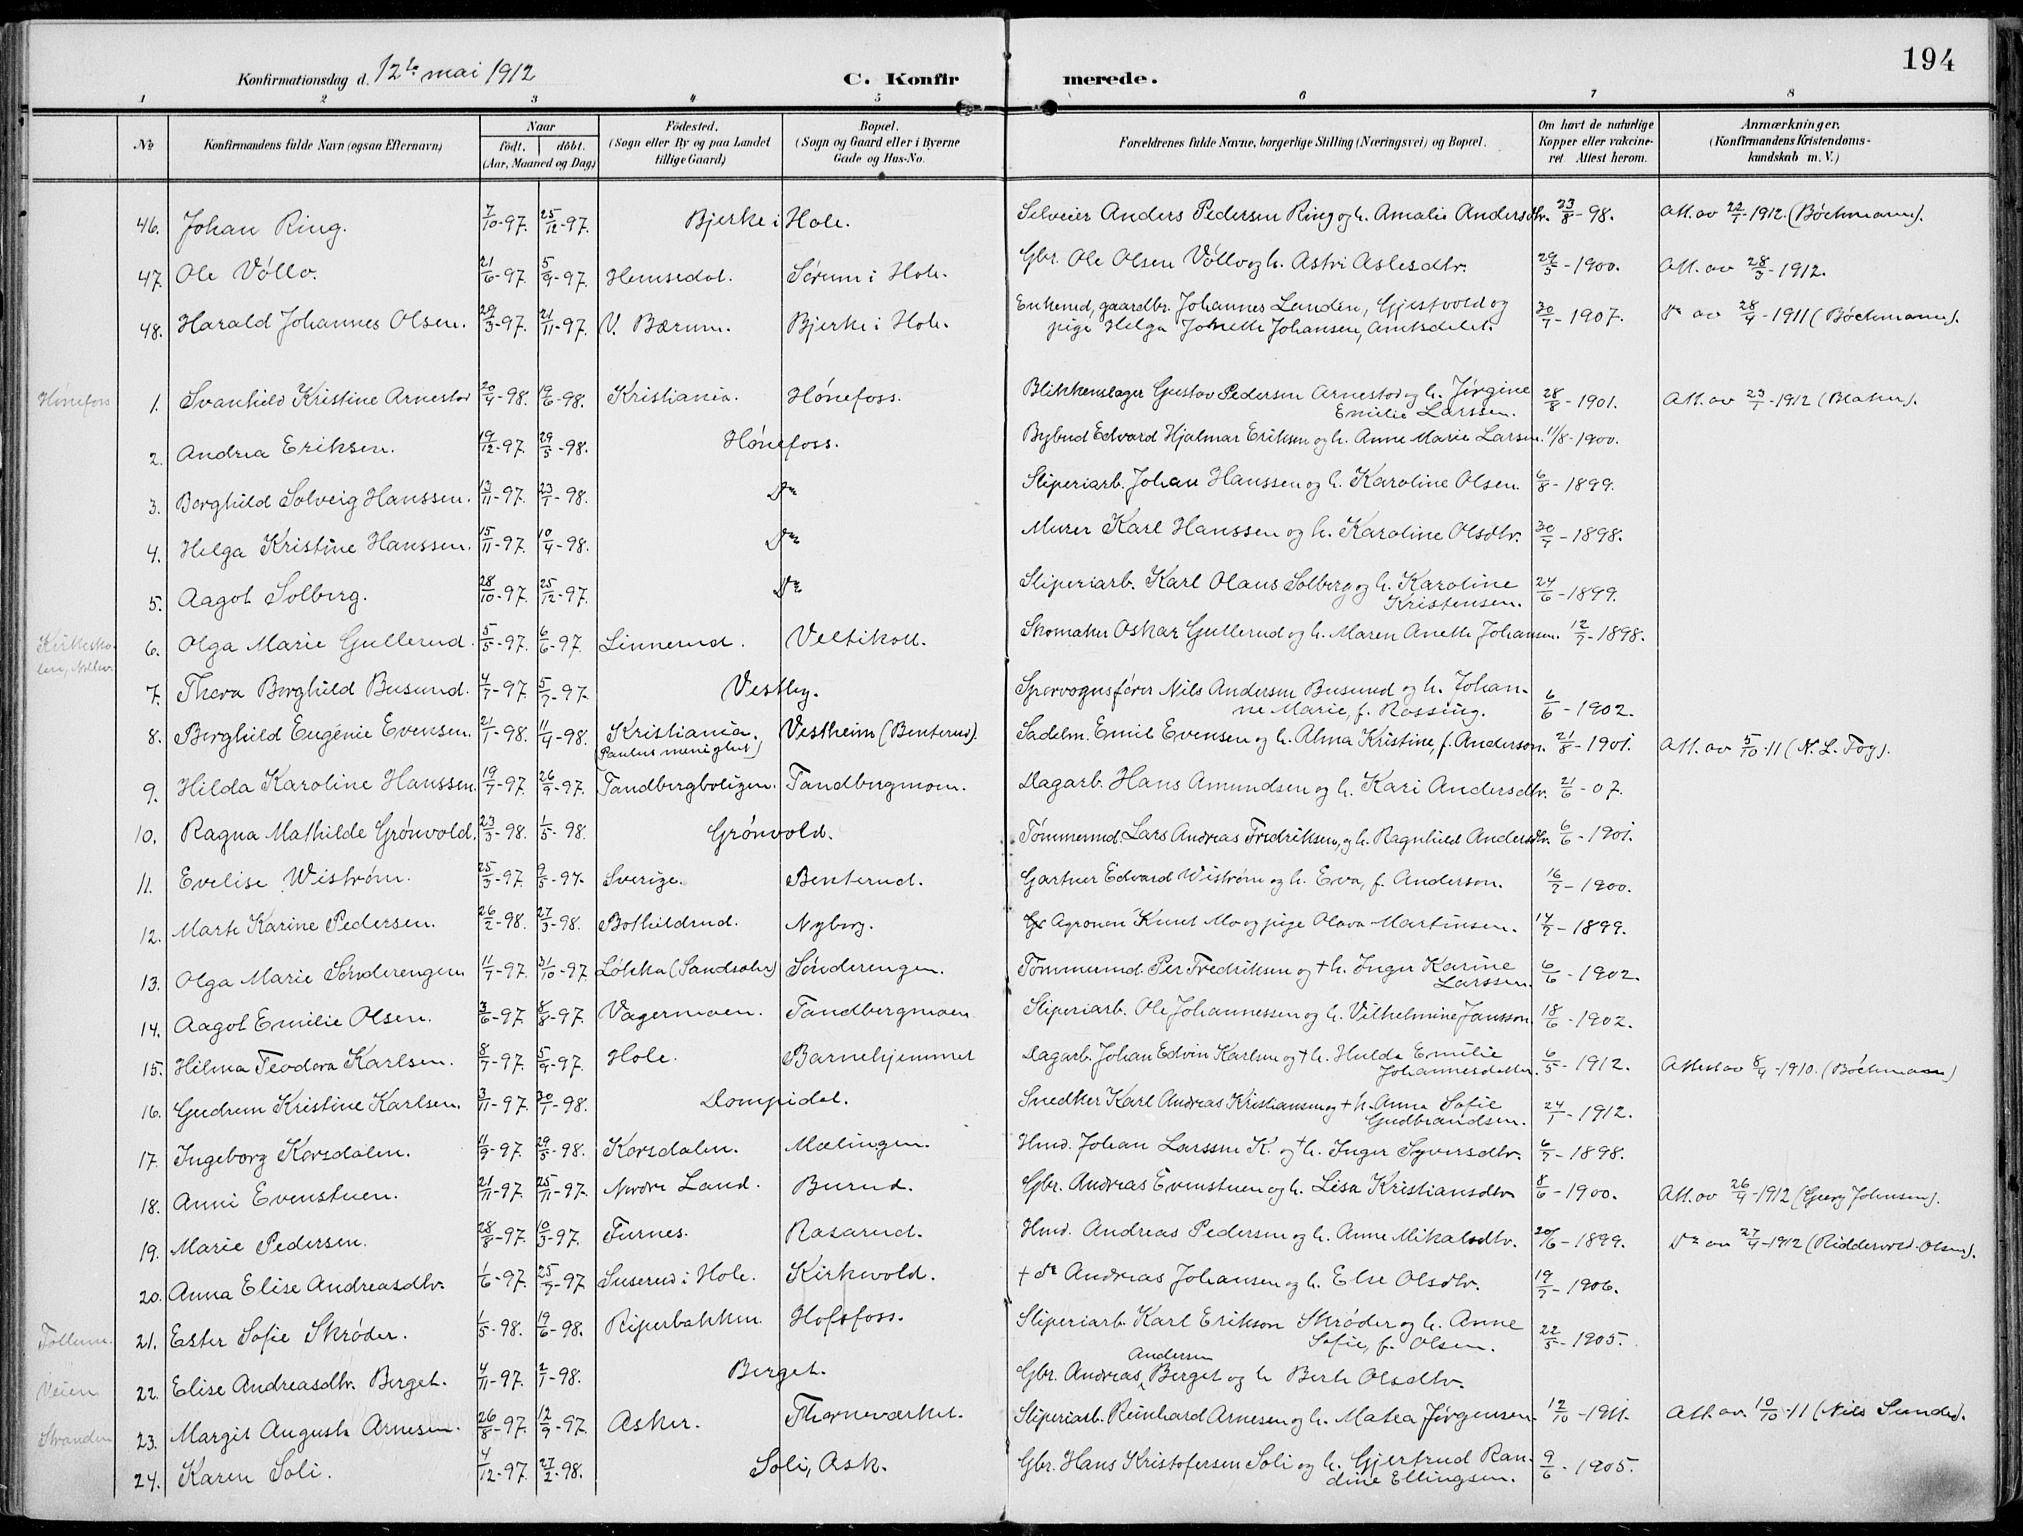 194
Konfirmationsdag d. 12te mai 1912 C. Konfirmerede.
1 2 3 4 5 6 7 8
No Konfirmandens fulde Navn (ogsaa Efternavn) Naar født. døbt. (Aar, Maaned og Dag) Fødested. (Sogn eller By og paa Landet tillige Gaard) Bopæl. (Sogn og Gaard eller i Byerne Gade og Hus-No. Forældrenes fulde Navne, borgerlige Stilling (Næringsvei) og Bopæl. Om havt de naturlige Kopper eller vakcineret. Attest herom. Anmærkninger. (Konfirmandens Kristendomskundskab m. V.)
46. Johan Ring. 7/10-97. 25/12-97. Bjerke i Hole. Selveier Anders Pedersen Ring og h. Amalie Andersdtr. 23/8-98. Att. av 22/1-1912. (Bøchmann).
47. Ole Vøllo. 21/6-97. 5/9-97. Hemsedal. Sørum i Hole. Gbr. Ole Olsen Vøllo og h. Astri Aslesdtr. 29/5-1900. Att. av 28/3-1912.
48. Harald Johannes Olsen. 29/3-97. 21/11-97. V. Bærum. Bjerke i Hole. Enkemd, gaardbr. Johannes Lunden, Gjestvold og
pige Helga Jonette Johansen, Amtsdalet. 30/7-1907. Do av 28/4-1911 (Bøchmann).
Hønefoss 1. Svanhild Kristine Arnestad 20/4-98. 19/6-98. Kristiania. Hønefoss. Blikkenslager Gustav Pedersen Arnestad og h. Jørgine
Emilie Larssen. 28/8-1901. Att. av 23/1-1912
2. Andrea Eriksen. 19/12-97. 29/5-98. Hønefoss. Bybud Edvard Hjalmar Eriksen og h. Anne Marie Larsen. 11/8-1900.
3. Borghild Solveig Hanssen. 13/11-97. 23/1-98. Do Sliperiarb. Johan Hanssen og h. Karoline Olsen. 6/8-1899.
4. Helga Kristine Hanssen. 15/11-97. 10/4-98. Do Murer Karl Hanssen og h. Karoline Olsdtr. 30/7-1898.
5. Aagot Solberg. 28/10-97. 25/12-97. Do Sliperiarb. Karl Olaus Solberg og h. Karoline
Kristensen. 24/6-1899.
Kirkesko- 6. Olga Marie Gullerud. 5/5-97. 6/6-97. Linnerud. Veltikoll. Skomaker Oskar Gullerud og h. Maren Anette Johansen. 12/7-1898.
len,
7. Thora Borghild Busund. 4/7-97. 5/7-97. Vestby. Sporvognsfører Nils Andersen Busund og h. Johan-
ne Marie, f. Rossing. 6/6-1902.
8. Borghild Eugenie Evensen. 21/1-98. 11/4-98. Kristiania. Vestheim (Benterud). Sadelm. Emil Evensen og h. Alma Kristine, f. Anderson. 21/8-1901. Att. av 5/10-11
(Paulus menighet)
9. Hilda Karoline Hanssen. 19/7-97. 26/9-97. Tandbergboligen. Tandbergmoen. Dagarb. Hans Amundsen og h. Kari Andersdtr. 21/6-07.
10. Ragna Mathilde Grønvold. 23/3-98. 1/5-98. Grønvold. Tømmermd. Lars Andreas Fredriksen, og h. Ragnhild Andersdtr. 6/6-1901.
11. Evelise Wistrøm. 25/3-97. 9/5-97. Sverige. Benterud. Gartner Edvard Wistrøm og h. Eva, f. Anderson. 16/7-1900.
12. Marte Karine Pedersen. 26/2-98. 27/3-98. Bothildrud. Nyborg. Agronom Knut Mo og pige Olava Martinsen. 17/7-1899.
13. Olga Marie Sønderengen. 11/7-97. 31/10-97 Løkka (Sandsaker) Sønderengen. Tømmermd. Per Fredriksen og + h. Inger Karine
Larssen. 6/6-1902.
14. Aagot Emilie Olsen. 3/6-97. 8/8-97. Vagermoen. Tandbergmoen Sliperiarb. Ole Johannessen og h. Vilhelmine Jansson. 18/6-1902.
15. Hilma Teodora Karlsen. 8/7-97. 5/9-97. Hole. Barnehjemmet Dagarb. Johan Edvin Karlsen og + h. Hulda Emilie
Johannesdatter. 6/5-1912. Attest av 8/4-1910. (Bøchmann)
16. Gudrun Kristine Karlsen. 3/11-97. 30/1-98. Dompidal. Snedker Karl Andreas Kristiansen og + h. Anna Sofie
Gudbrandsen. 24/1-1912.
17. Ingeborg Korsdalen. 11/9-97. 29/5-98. Korsdalen. Mælingen. Hmd. Johan Larssen K. og + h. Inger Syversdtr. 6/7-1898.
18. Anni Evenstuen. 21/11-97. 25/11-97. Nordre Land. Burud. Gbr. Andreas Evenstuen og h. Lisa Kristiansdtr. 8/6-1900. Att. av 26/4-1912 (Georg Johnsen).
19. Marie Pedersen. 28/8-97. 10/3-97. Furnes. Rasarud. Hmd. Andreas Pedersen og h. Anne Mikalsdtr. 20/6-1899. Do av 27/4-1912 (Riddervold-Olsen).
20. Anna Elise Andreasdtr. 1/6-97. 25/7-97 Suserud i Hole. Kirkvold. + do Andreas Johansen og h. Else Olsdtr. 19/7-1906.
Follum. 21. Ester Sofie Skrøder. 1/5-98. 19/6-98. Riperbakken Hofsfoss. Sliperiarb. Karl Erikson Skrøder og h. Anne
Sofie, f. Olsen. 22/5-1905.
Veien 22. Elise Andreasdtr. Berget. 4/11-97. 2/1-98. Berget. Gbr. Andreas Andersen Berget og h. Berte Olsdtr.
Stranden 23. Margit Augusta Arnesen. 26/8-97. 12/9-97. Asker. Thorneværket. Sliperiarb. Reinhard Arnesen og h. Matea Jørgensen. 12/10-1911. Att. av. 10/10-11 (Nils Sunde).
24. Karen Soli. 4/12-97. 27/2-98. Soli, Ask. Gbr. Hans Kristofersen Soli og h. Gjertrud Ran-
dine Ellingsen. 9/6-1905.